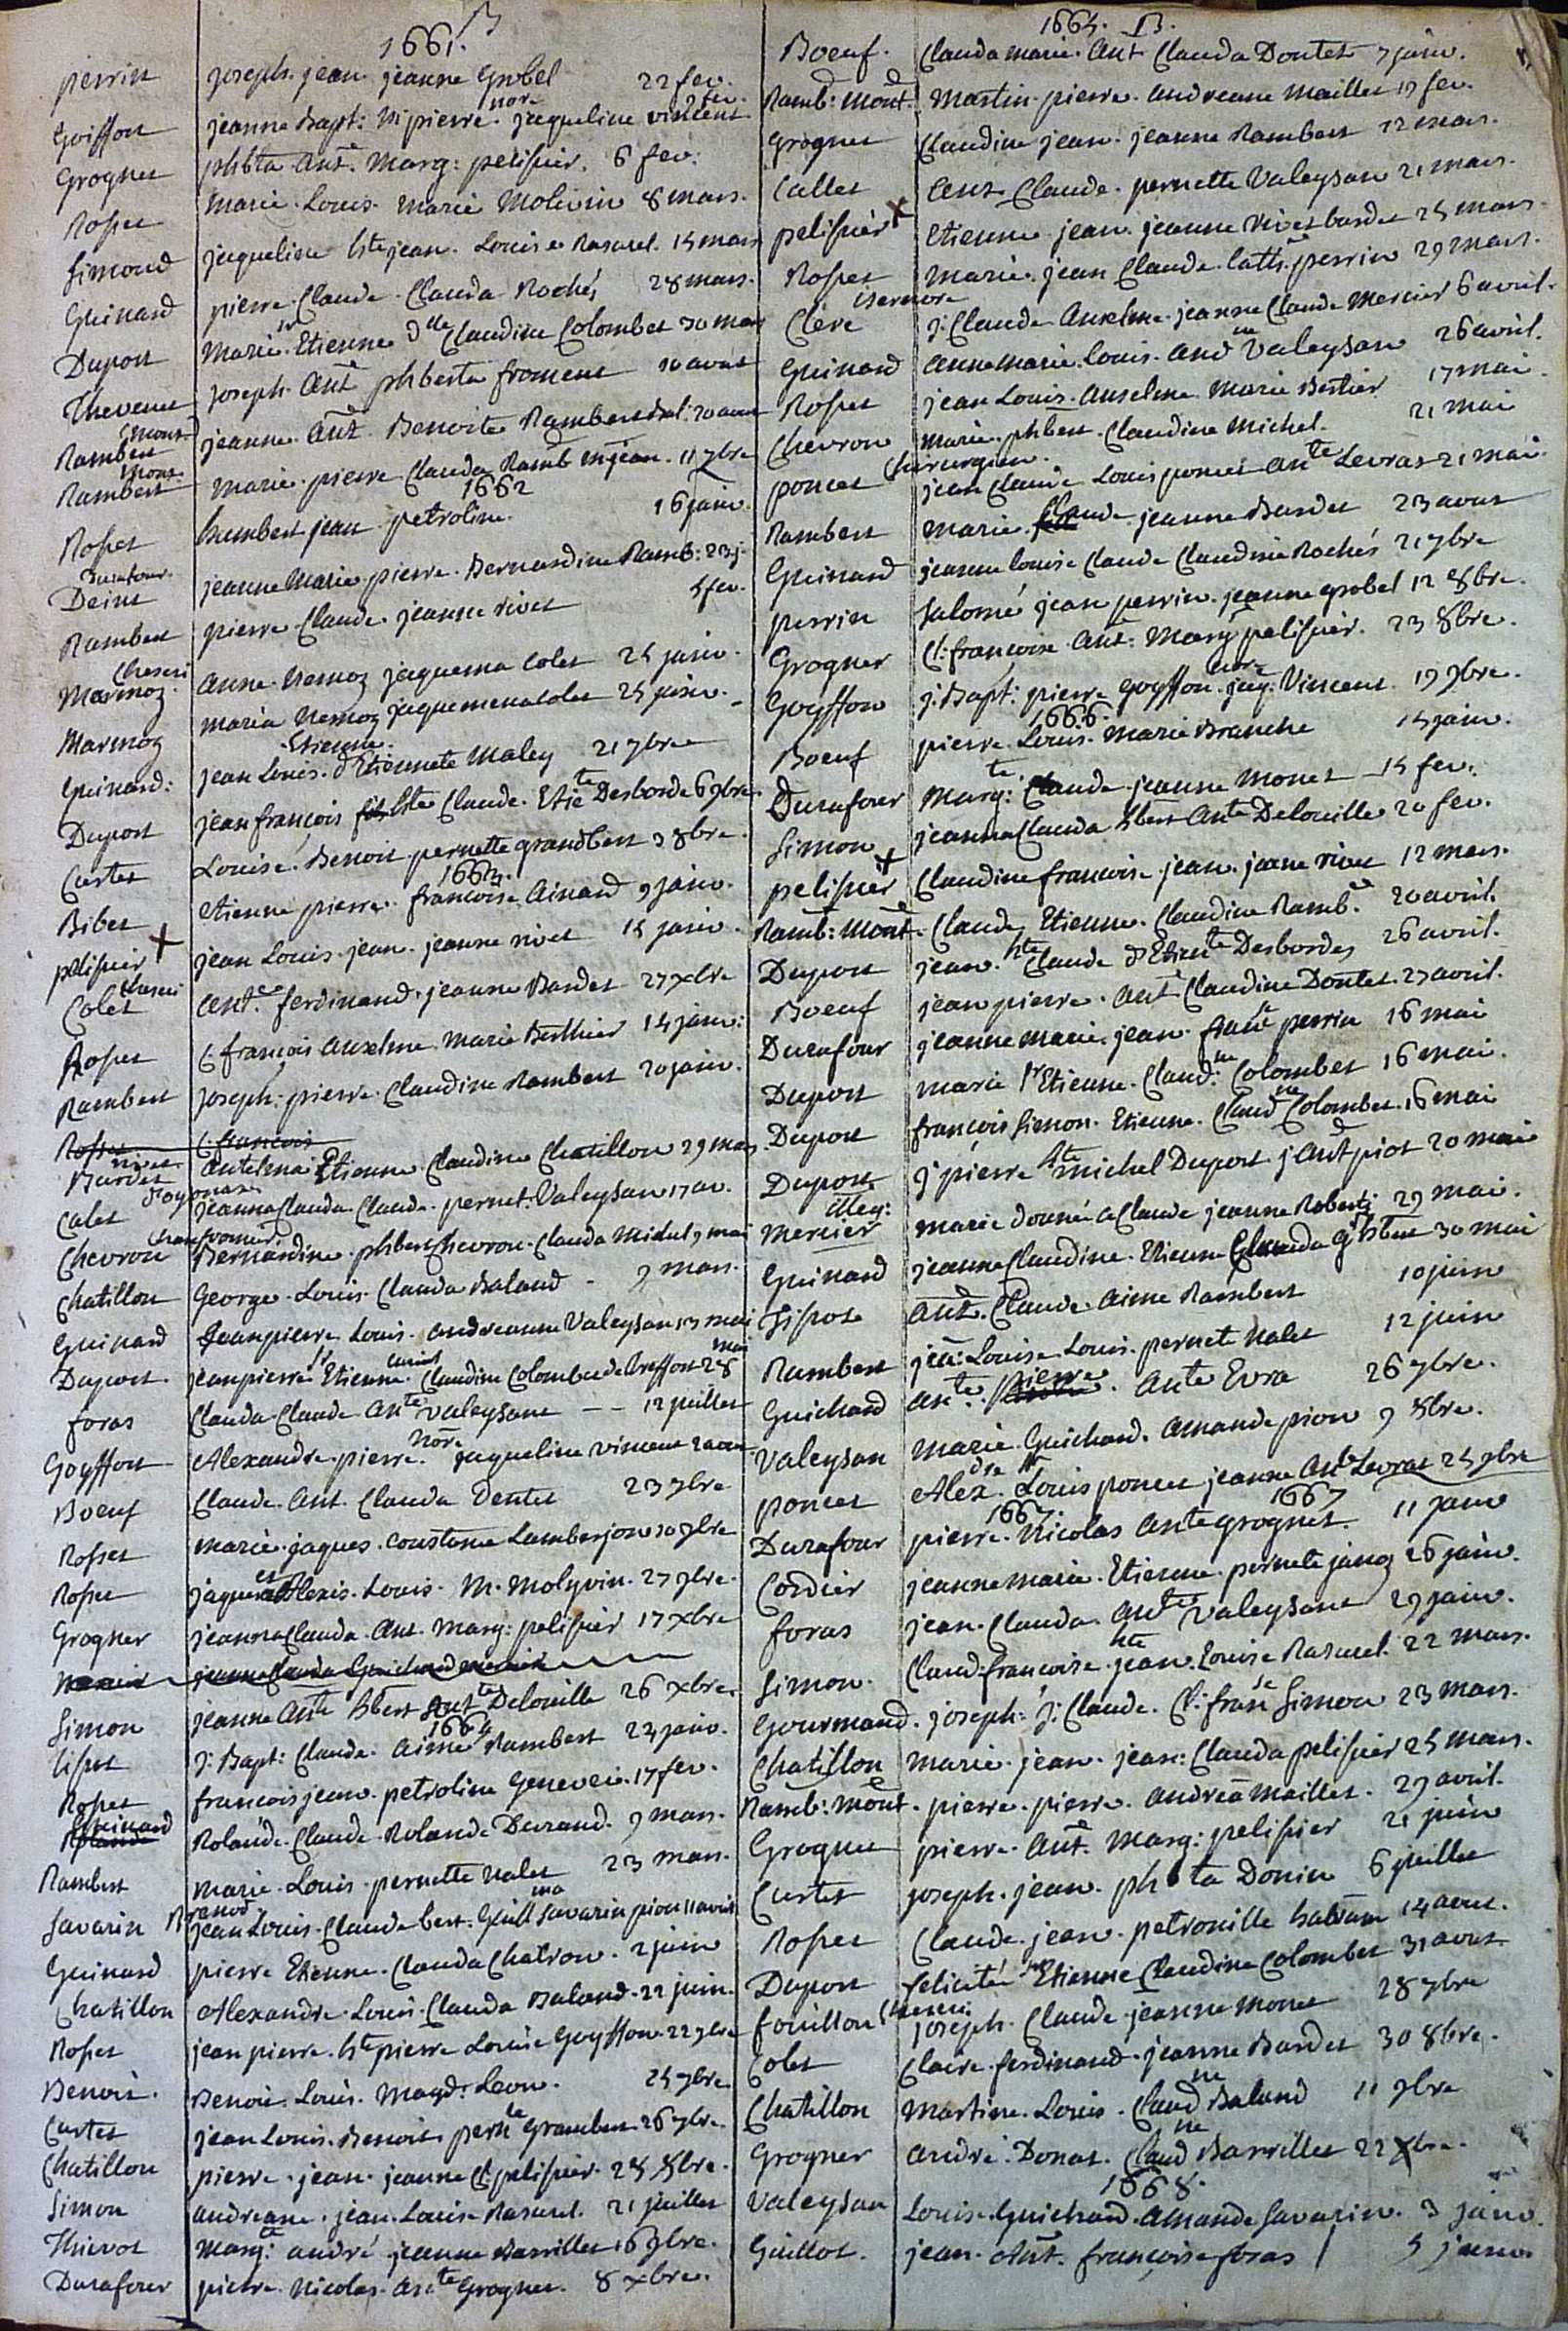 1661. B
perrin joseph. jean. jeanne Grobel 22 fev.
Goiffon jeanne Bapt: m. pierre nore. jaqueline vincent 2 fev.
Grognet phbta ante. Marg: pelissier. 6 fev.
Rosset Marie. Louis. marie Molivin 8 mars.
Simond jaqueline hte jean. Louise Rasurel. 15 mars
Guinard pierre. Claude. Clauda Rochés 28 mars.
Dupont Marie. sr Etienne dlle Claudine Colombet 30 mars
Thevenet joseph. Ante phberta froment 10 avril
Rambert mont. jeanne. Ant. Benoite Rambert
Rambert mont. marie. pierre Clauda Ramb m jean. 11 7bre
1662
Rosset humbert jean petroline. 16 janv.
Durafour. Deint jeanne Marie pierre. Bernardine Ramb: 23 j.
Rambert pierre. Claude. jeanne rivet 5 fev.
Marmoz anne. Nemoz jaquema Colet 25 janv.
Marmoz maria Nemoz jaquemena Colet 25 janv.
Guinard: jean Louis. Etienne. d'Etiennete Maley 21 7bre
Dupont jean françois hte Claude. Etiete Desborde 6 9bre.
Curtet Louise. Benoit pernette grandbert 3 8bre.
1663.
Bibet etienne pierre. françoise Ainard 9 janv.
pelissier + jean Louis. jean. jeanne rivet 15 janv.
Colet ante. ferdinand. jeanne Bardet 27 xbre
Rosset C. françois Anselme. Marie Berthier 14 janv.
Rambert joseph: pierre. Claudine Rambert 20 janv.
Rosset C. françois
Bardet rivet antelma Etienne Claudine Chatillon 29 mars
Calet d'oyonax jeanne Clauda. Claude. pernet: Valeysan 17 av.
Chevron Bernardine. phbert Chevron. Clauda Michel 9 mai
Chatillon George. Louis. Clauda Baland - 9 mars.
Guinard Jean pierre Louis. andreanne Valeysan 13 mai
Dupont. jean pierre sr Etienne. Claudine Colombet de Treffort 28 mai
foras Clauda. Claude Ante valeysane -- 12 juillet
Goyffon Alexandre. pierre. nore. jaqueline vincent 2 aout
Boeuf Claude. Ant. Clauda Dentet 23 7bre
Rosset marie. jaques. Constance Lamberjon 10 7bre
Rosset jaques et Alexis. Louis. M. Molyvin. 27 9bre.
Grogner jeanne Clauda. Ant. Marg: pelissier 17 xbre
Mercier jeanne Clauda Guichard mercier
Simon jeanne Ante hbert Ante Delouille 26 xbre.
1664
Sipot J. Bapt: Claude. Aimé Rambert 23 janv.
Rosset francois jean. petroline Genevei. 17 fev.
Guinard Rolande. Claude. Rolande Durand. 9 mars.
Rambert Marie. Louis. pernette Nalet 23 mars.
Savarin jean Louis. Claude bert: Guillma Savarin pion 11 avril
Guinard pierre Etienne. Clauda Chatron. 2 juin
Chatillon Alexandre. Louis. Clauda Baland. 22 juin.
Rosset jean pierre. hte pierre Louise Goyffon. 22 7bre
Benoit. Benoit. Louis. Magd: Leon. 25 7bre
Curtet jean Louis. Benoit. pernte Grambert. 26 7bre.
Chatillon pierre. jean. jeanne Cl. pelissier. 28 8bre.
Simon andreane. jean. Louise Rasurel. 21 juillet
Thievot Margte: andré jeanne Barrillet 16 9bre.
Durafour pierre. Nicolas. Ante Grognet. 8 xbre.
1665. B.
Boeuf. Clauda marie. Ant Clauda Dontet 7 janv.
Ramb: mont. Martin. pierre. andreane Maillet 19 fev.
Grognet Claudine jean. jeanne Rambert 12 mars.
Callet Ant. Claude. pernette Valeysan 21 mars.
pelissier + Etienne. jean. jeanne Rivet bardet 25 mars.
Rosset Marie. jean Claude. Cath: perrin 29 mars.
Clere isernore J. Claude Anselme. jeanne Claude Mercier 6 avril.
Guinard anne marie. Louis. And ne Valeysan 26 avril.
Rosset jean Louis. Anselme Marie Bertier 17 mai.
Chevron marie. phbert. Claudine Michel. 21 mai
poncet chirurgien. jean Claude Louis poncet ante Levrat 21 mai.
Rambert marie. Claude. jeanne Bardet 23 aout
Guinard jeanne louise Claude Claudine Rochés 21 7bre
perrin Salomé jean perrin. jeanne grobel 12 8bre.
Grogner C. françoise. Ant: Marg pelissier. 23 8bre.
Goyffon J. Bapt: pierre goyffon nore. jaq: Vincent. 19 9bre.
1666.
Boeuf pierre. Louis. Marie Branche 15 janv.
Durafour Margte: Claude. jeanne Monet - 15 fev.
Simon jeanne Clauda hbert Ante Delouille 20 fev.
pelissier + Claudine francoise. jean. jeane rivet 12 mars.
Ramb: mont. Claude, Etienne. Claudine Ramb. 20 avril.
Dupont jean. hte Claude d'Etiente Desbordes 26 avril.
Boeuf jean pierre. Ant Claudine Dontet. 27 avril.
Durafour jeanne marie. jean. franse perrin 16 mai
Dupont marie sr Etienne. Claud:ne Colombet 16 mai.
Dupont françois Simon. Etienne. Claudne Colombet. 16 mai
Dupont J. pierre hte michel Dupont j. Ant piot 20 mai
Mercier illeg: marie donnée a Claude jeanne Robert 29 mai.
Guinard jeanne Claudine. Etienne Clauda 30 mai
Sipot Ant. Claude. Aimé Rambert 10 juin
Rambert jea: Louise Louis. pernete Nalet 12 juin
Guichard Ante. pierre. Ante Evra 26 7bre.
Valeysan Marie. Guichard. Amande pion 9 8bre.
poncet Alexdre. Louis poncet jeanne Ante Levrat 25 9bre
1667. 1667
Durafour pierre. Nicolas Ante grognet. 11 janv
Cordier jeanne marie. Etienne. pernete janoz 26 janv.
foras jean. Claude. Ante Valeysane 29 janv.
Simon. Claud: françoise. hte jean. Louise Rasurel. 22 mars.
Gourmand. joseph: J: Claude. Cl: franse Simon 23 mars.
Chatillon marie. jean. jean: Clauda pelissier 25 mars.
Ramb: mont. pierre. pierre. Andrea Maillet. 29 avril.
Grognet pierre. Ant. Marg: pelissier 21 juin
Curtet joseph. jean. phbta Donin 6 juillet
Rosset Claude. jean. petronille 14 aout.
Dupont felicité sr Etienne Claudine Colombet 31 aout.
fouillon joseph. Claude. jeanne Monet 28 7bre
Colet Claire. ferdinand. jeanne Bardet 30 8bre.
Chatillon Martine. Louis. Claudne Baland 11 9bre
Grogner André. Donat. Claudne Barrillet 22 xbre.
1668.
Valeysan Louis. Guichard. Amande Savarin. 3 janv.
Guillot. jean. Ant. françoise foras 5 janv.